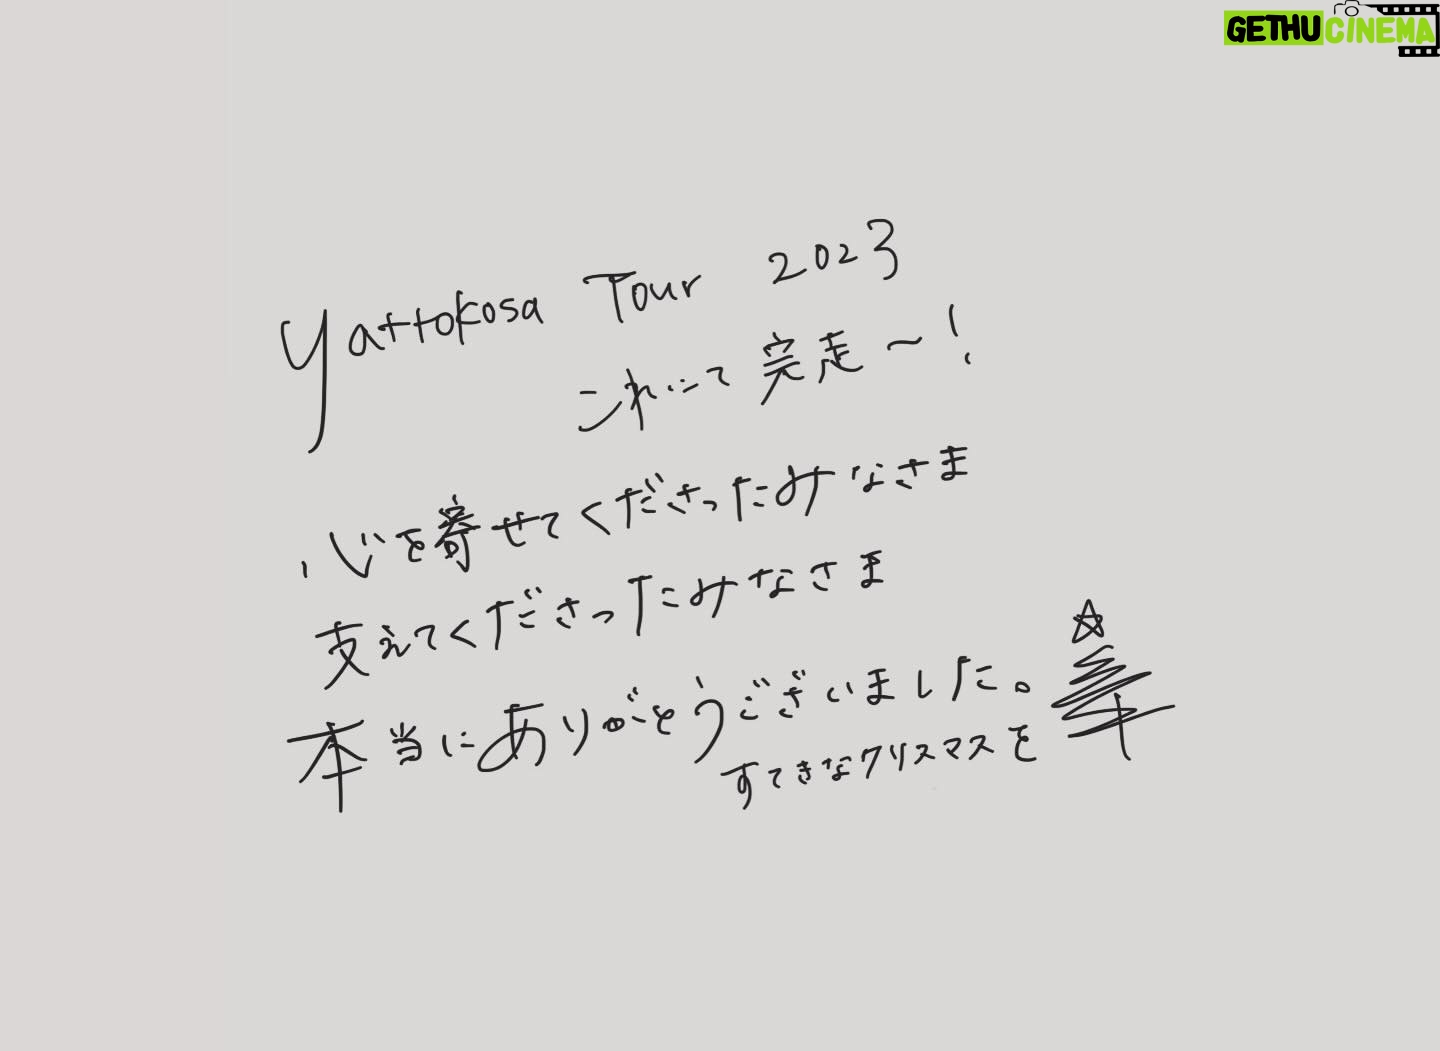 GETHUCINEMA
Yattokosa Tour 2023
これにて完走〜!
心を寄せてくださったみなさま
支えてくださったみなさま
本当にありがとうございました。
すてきなクリスマスを